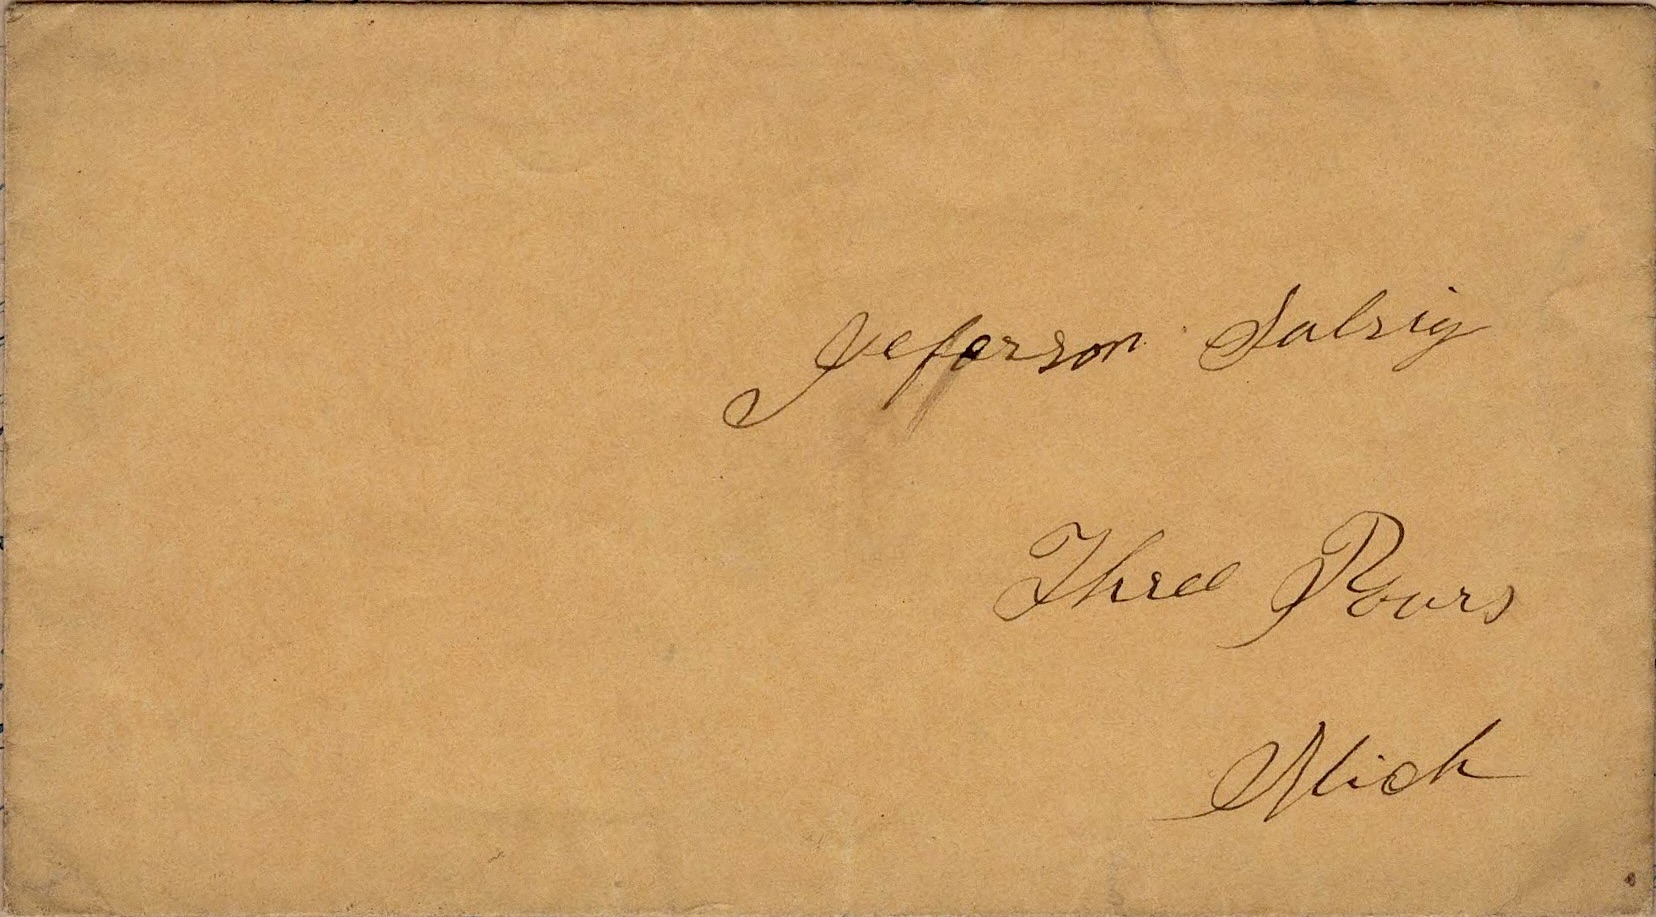 Jeferson Salsig
Three Rivers
Mich